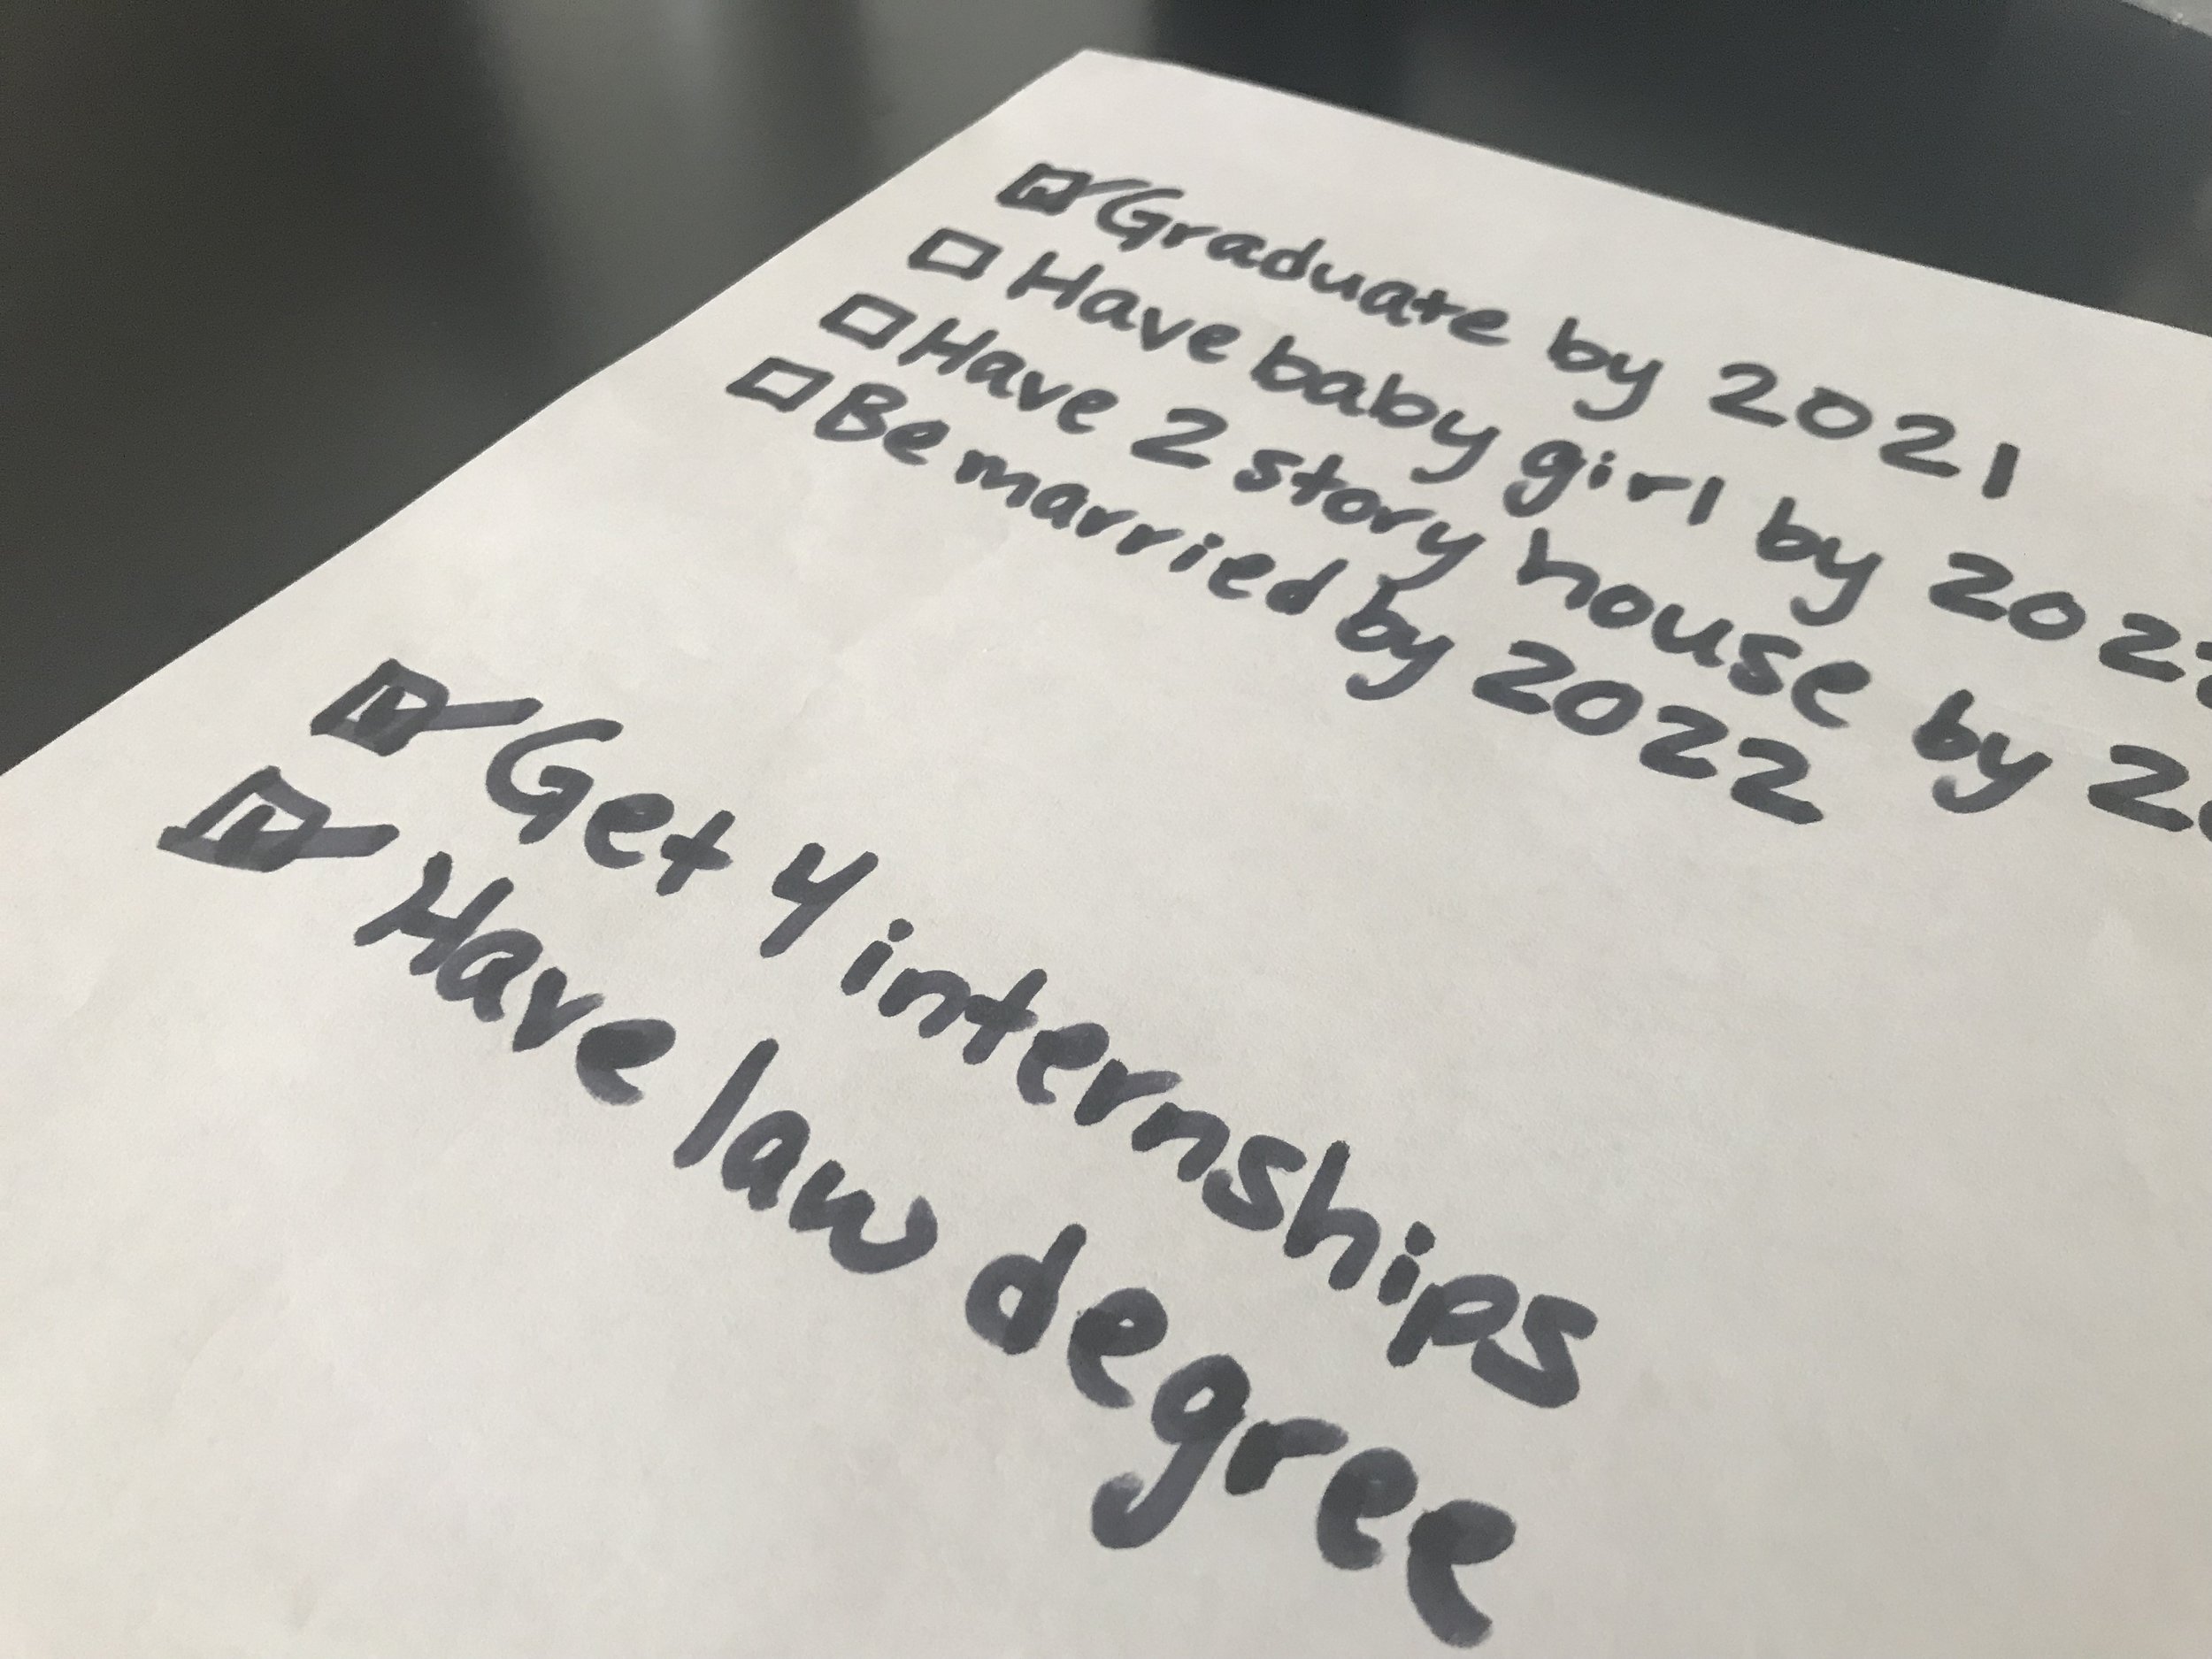 ☑ Graduate by 2021
☐ Have baby girl by
☐ Have 2 story house by
☐ Be married by 2022
☑ Get 4 internships
☑ Have law degree